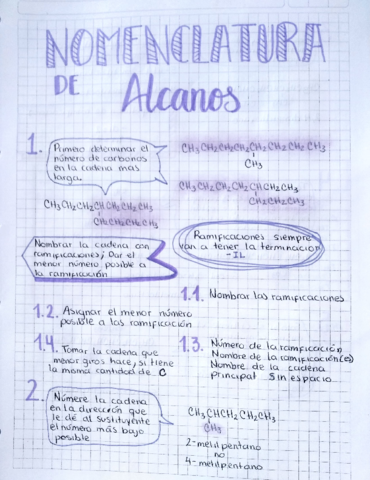 NOMENCLATURA
DE Alcanos
1. Primero determinar el
número de carbonos
en la cadena mas
larga.
CH3CH2CH2CH2CH2CH2CH2CH3
CH3
CH3CH2CH2CH2CHCH2CH3
CH2CH2CH3
CH3CH2CH2CHCH2CH2CH3
CH2CH2CH2CH3
Nombrar la cadena con
ramificaciones; Dar el
menor número posible a
la ramificación
Ramificaciones siempre
van a tener la terminacion
-IL
1.1. Nombrar las ramificaciones
1.2. Asignar el menor número
posible a las ramificación
1.4. Tomar la cadena que
menor giros hace, si tiene
la misma cantidad de C
1.3. Número de la ramificación
Nombre de la ramificación(es)
Nombre de la cadena
principal sin espacio
2. Númere la cadena
en la dirección que
le dé al sustituyente
el número más bajo
posible
CH3CHCH2CH2CH3
CH3
2-metilpentano
no
4-metilpentano